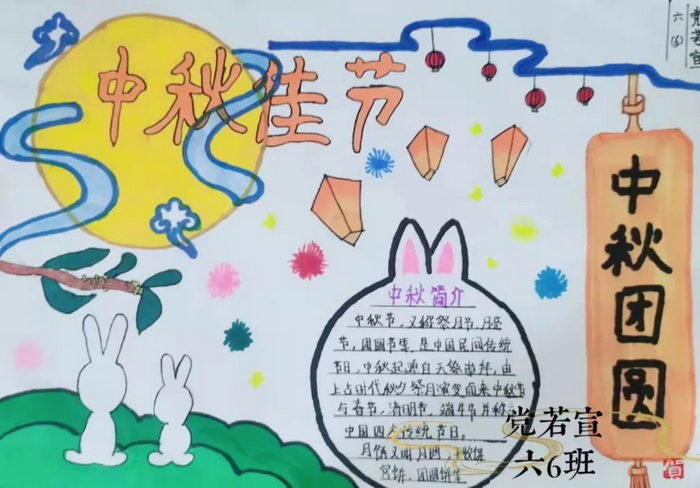 中秋佳节
党若宣
六(6)
中秋团圆
中秋简介
中秋节,又称祭月节、月
节、团圆节等,是中国民间传统
节日,中秋起源自天象崇拜,由
上古时代秋夕祭月演变而来中秋节
与春节、清明节、端午节并称
中国四大传统节日。
月饼又
宫饼、团圆饼等
党若宣
六6班